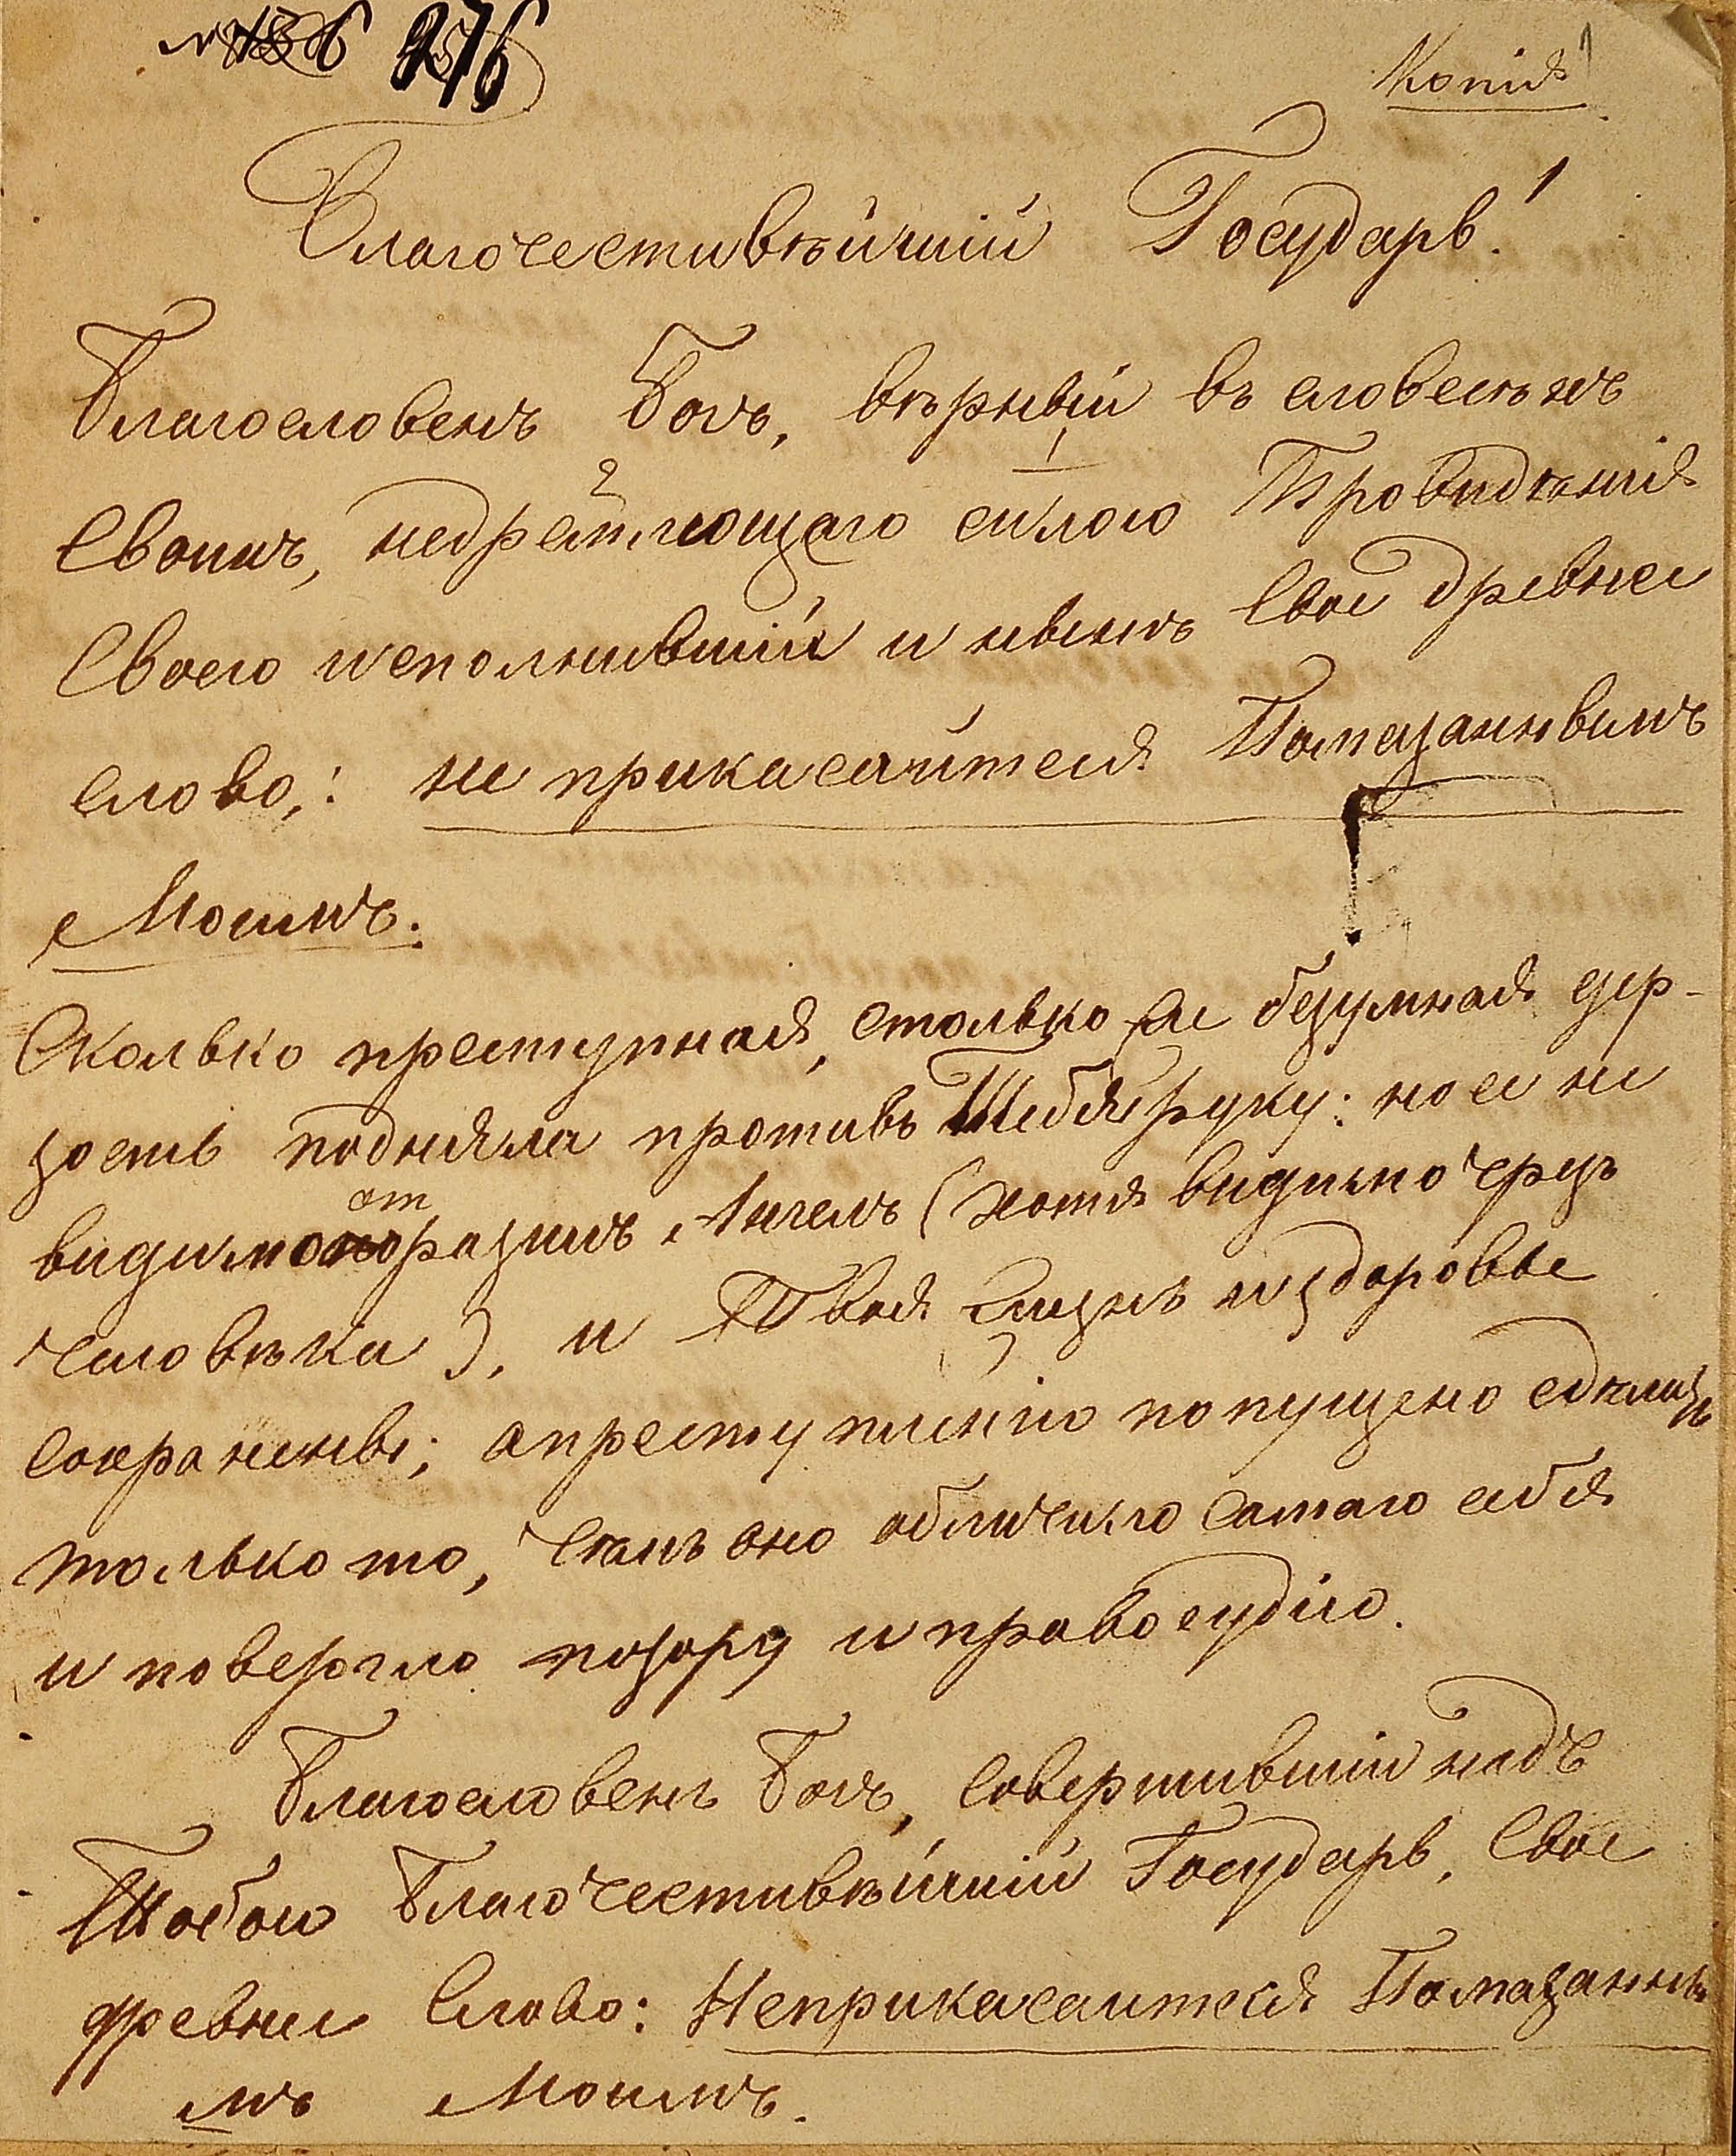 276
Копія
Благочестивѣйшій Государь!
Благословенъ Богъ, вѣрный въ словесѣхъ
Своихъ, недремлющаго силою Провидѣнія
Своего исполнившій и нынѣ Свое древнее
слово,: не прикасайтеся Помазаннымъ
Моимъ.
Сколько преступная, столько же безумная дер-
зость подняла противъ Тебя руку: но ее не
видимо отразилъ Ангелъ (хотя видимо чрезъ
человѣка), и Твоя жизнь и здоровье
сохранены; а преступленію попущено сдѣлать
только то, чтобъ оно обличило самаго себя
и повергло позору и правосудію.
Благословенъ Богъ, совершившій надъ
Тобою Благочестивѣйшій Государь, Свое
древнее Слово: Неприкасаитеся Помазанны
мъ Моимъ.